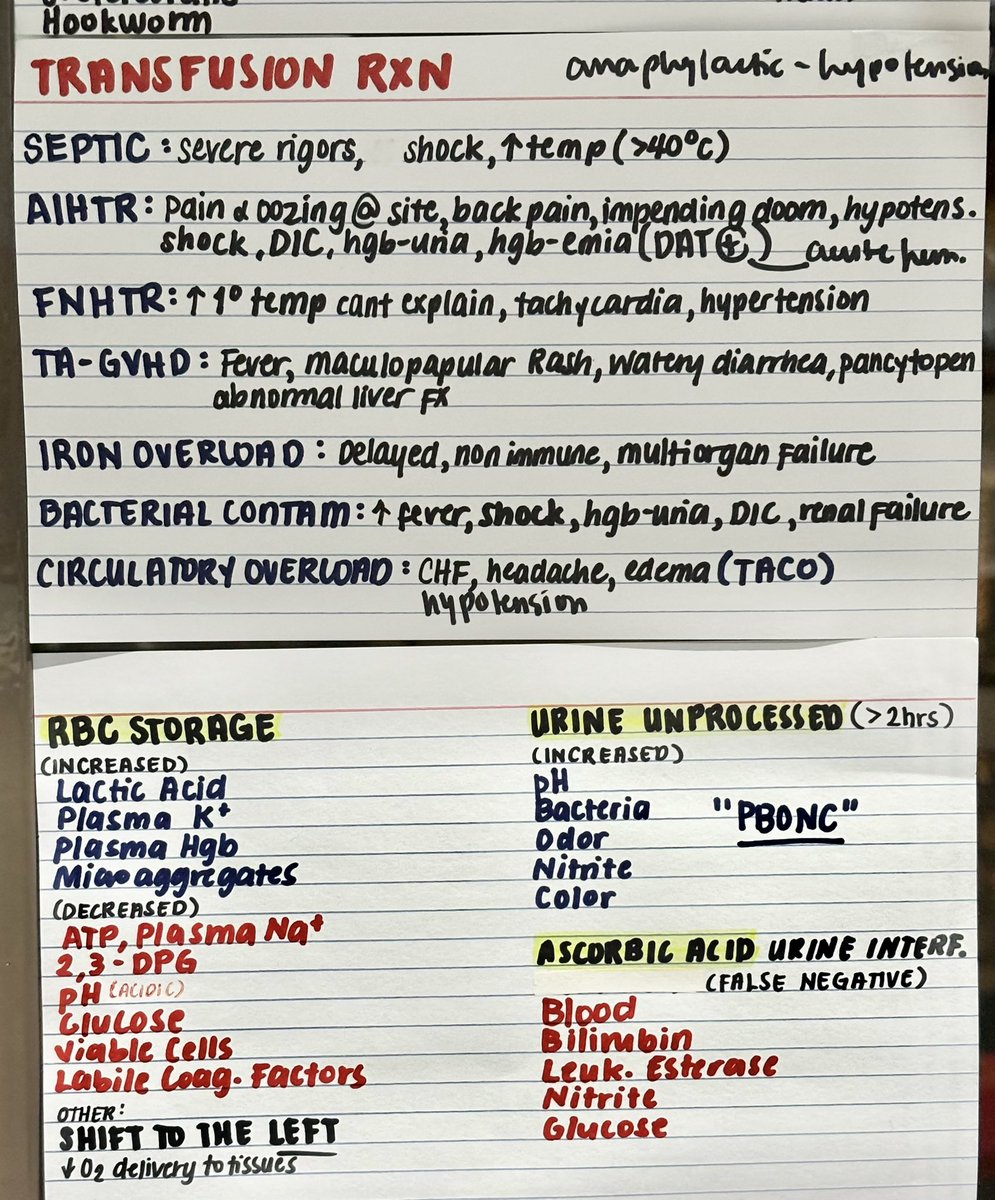 Hookworm
TRANSFUSION RXN
anaphylactic - hypotension
SEPTIC : severe rigors, shock, ↑ temp (>40°C)
AIHTR : Pain & oozing @ site, back pain, impending doom, hypotens.
shock, DIC, hgb-uria, hgb-emia (DAT ⊕) acute hem.
FNHTR : ↑ 1° temp cant explain, tachycardia, hypertension
TA-GVHD : Fever, maculopapular Rash, watery diarrhea, pancytopen
abnormal liver FX
IRON OVERLOAD : Delayed, non immune, multiorgan failure
BACTERIAL CONTAM : ↑ fever, shock, hgb-uria, DIC, renal failure
CIRCULATORY OVERLOAD : CHF, headache, edema (TACO)
hypotension
RBC STORAGE
(INCREASED)
Lactic Acid
Plasma K+
Plasma Hgb
Microaggregates
(DECREASED)
ATP, Plasma Na+
2,3-DPG
pH (ACIDIC)
Glucose
Viable Cells
Labile Coag. Factors
OTHER:
SHIFT TO THE LEFT
↓ O2 delivery to tissues
URINE UNPROCESSED (>2hrs)
(INCREASED)
pH
Bacteria
Odor
Nitrite
Color
"PBONC"
ASCORBIC ACID URINE INTERF.
(FALSE NEGATIVE)
Blood
Bilirubin
Leuk. Esterase
Nitrite
Glucose